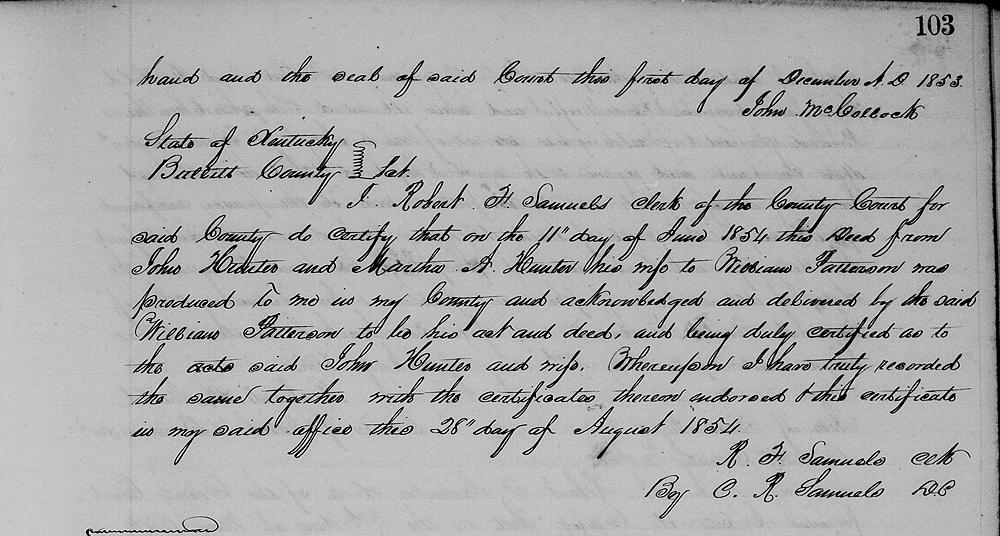 103
hand and the seal of said Court this first day of December A.D. 1853.
John McCollock
State of Kentucky
Bullitt County Sct.
I Robert F. Samuels clerk of the County Court for
said County do certify that on the 11" day of June 1854 this Deed from
John Hunter and Martha A. Hunter his wife to William Patterson was
produced to me in my County and acknowledged and delivered by the said
William Patterson to be his act and deed, and being duly certified as to
the acts said John Hunter and wife. Whereupon I have truly recorded
the same together with the certificates thereon endorsed & this certificate
in my said office this 28" day of August 1854.
R. F. Samuels Clk
By C. R. Samuels D.C